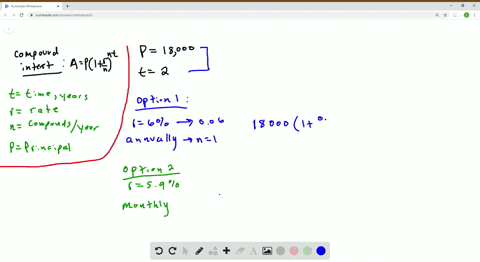 Numerade Whiteboard
numerade.com/answers/whiteboard/
compound
interst : A=P(1+r/n)^nt
t=time, years
r=rate
n=compounds/year
P=Principal
P=18,000
t=2
option 1:
r=6% → 0.06
annually → n=1
18000 (1+ 0.
option 2
r=5.9%
monthly